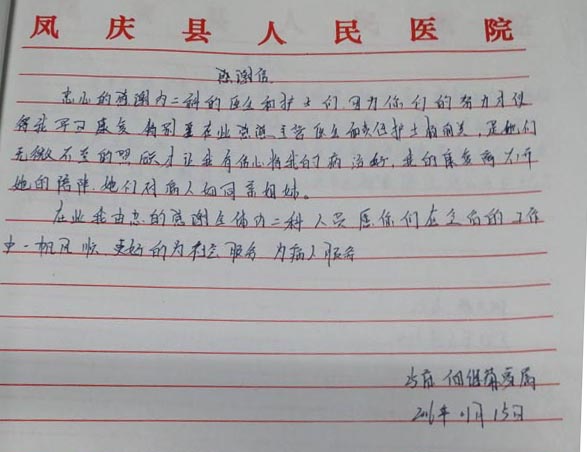 凤庆县人民医院
感谢信
忠心的感谢内二科的医生和护士们因为你们的努力才使
得我早日康复,特别要在此感谢主管医生和责任护士的关,是他们
无微不至的照顾才让我有信心将我的病治好,我的康复离不开
她的陪伴,她们对病人如同亲姐妹。
在此我由忠的感谢全体内二科人员愿你们在之后的工作
中一帆风顺,更好的为社会服务 为病人服务
家属
2016年01月15日